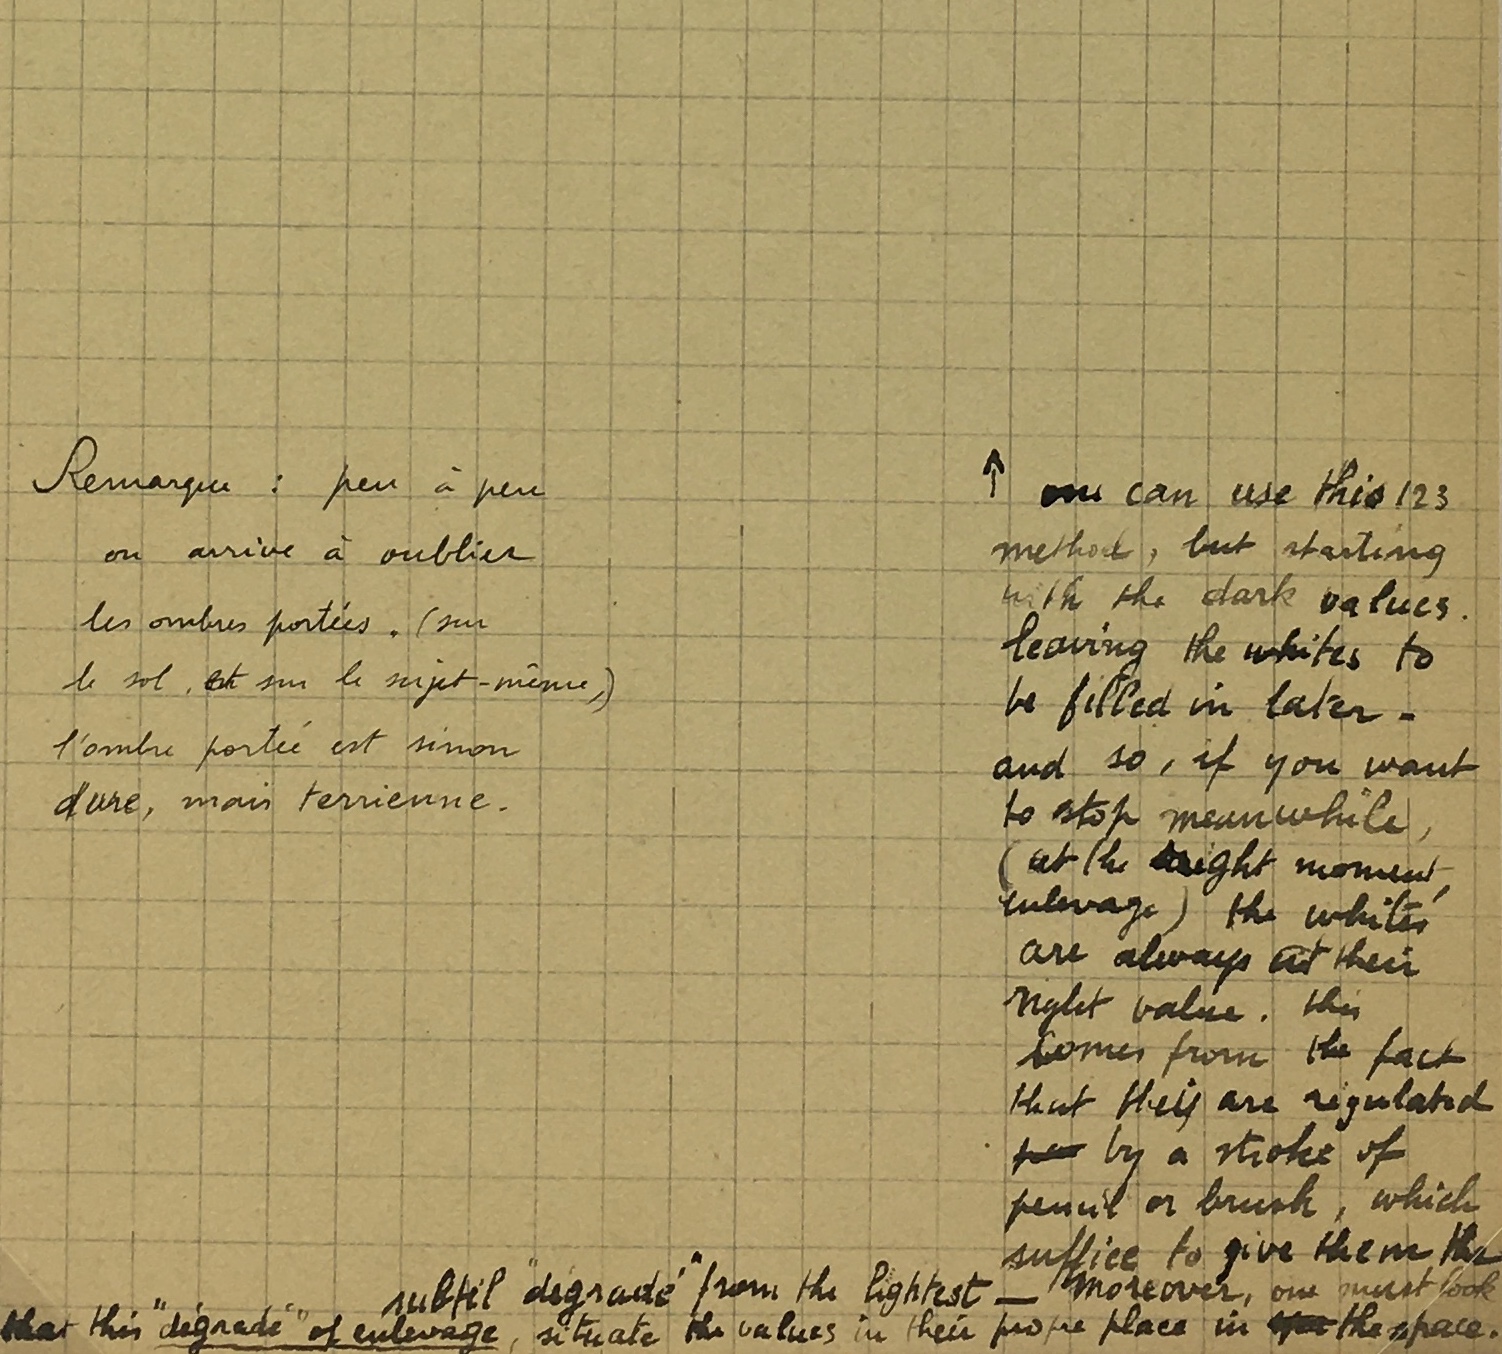 Remarque : peu à peu
on arrive à oublier
les ombres portées. (sur
le sol, et sur le sujet-même,)
l'ombre portée est sinon
dure, mais terrienne.
↑ one can use this 123
method, but starting
with the dark values.
leaving the whites to
be filled in later -
and so, if you want
to stop meanwhile,
(at the right moment,
enlevage) the whites
are always at their
right value. this
comes from the fact
that they are regulated
by a stroke of
pencil or brush, which
suffice to give them the
subtil "dégradé" from the lightest — Moreover, one must look
that this "dégradé" of enlevage, situate the values in their propre place in the space.